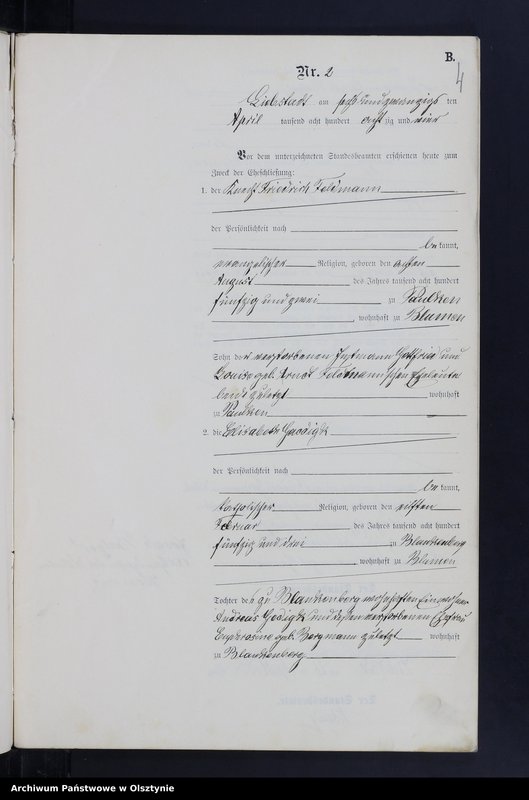 B.
4
Nr. 2
Liebstadt am sechs und zwanzigs ten
April tausend acht hundert acht zig und vier
Vor dem unterzeichneten Standesbeamten erschienen heute zum
Zweck der Eheschließung:
1. der Knecht Friedrich Feldmann
der Persönlichkeit nach
be kannt,
evangelischer Religion, geboren den achten
August des Jahres tausend acht hundert
fünfzig und zwei zu Paulken
, wohnhaft zu Blumen
Sohn der verstorbenen Instmann Gottfried und
Louise geb. Arndt Feldmannschen Eheleute
beide zuletzt wohnhaft
zu Paulken
2. die Elisabeth Goedigk
der Persönlichkeit nach
be kannt,
katholischer Religion, geboren den elften
Februar des Jahres tausend acht hundert
fünfzig und drei zu Blankenberg
, wohnhaft zu Blumen
Tochter des zu Blankenberg wohnhaften Einwohner
Andreas Goedigk und dessen verstorbenen Ehefrau
geb. Bergmann zuletzt wohnhaft
zu Blankenberg
Archiwum Państwowe w Olsztynie